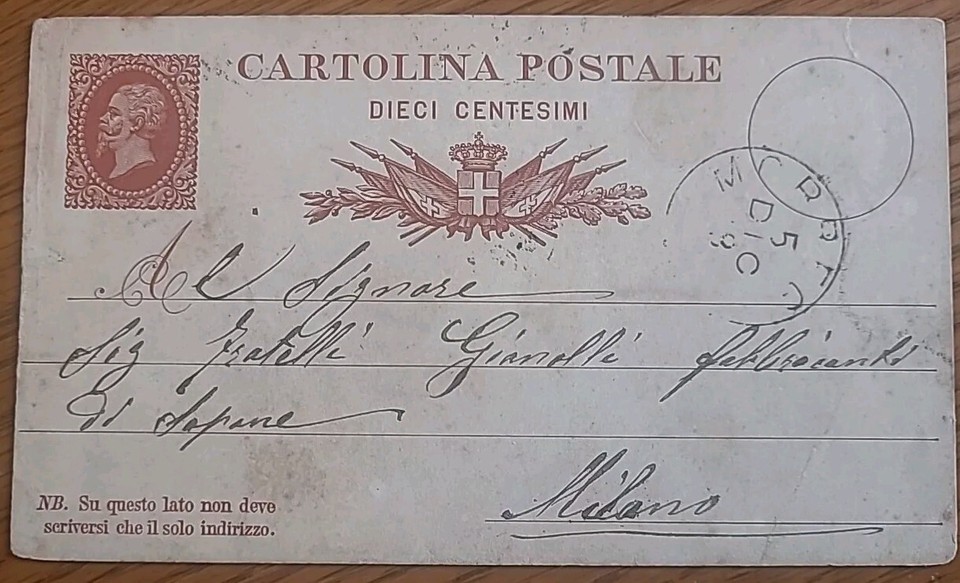 CARTOLINA POSTALE
DIECI CENTESIMI
5
DIC
Al Signore
Sig Fratelli Gianolli fabbricanti
di Sapone
Milano
NB. Su questo lato non deve
scriversi che il solo indirizzo.